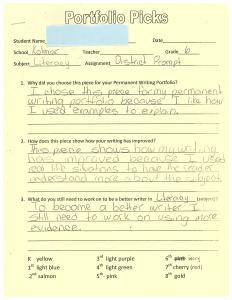 Portfolio Picks
Student Name Date
School Kolmar Teacher Grade 6
Subject Literacy Assignment District Prompt
1. Why did you choose this piece for your Permanent Writing Portfolio?
I chose this piece for my permanent
writing portfolio because I like how
I used examples to explain.
2. How does this piece show how your writing has improved?
This piece shows how my writing
has improved because I used
real life situations to have the reader
understand more about the subject.
3. What do you still need to work on to be a better writer in Literacy (subject)?
To become a better writer I
still need to work on using more
evidence.
K yellow 3rd light purple 6th ivory
1st light blue 4th light green 7th cherry (red)
2nd salmon 5th - pink 8th gold